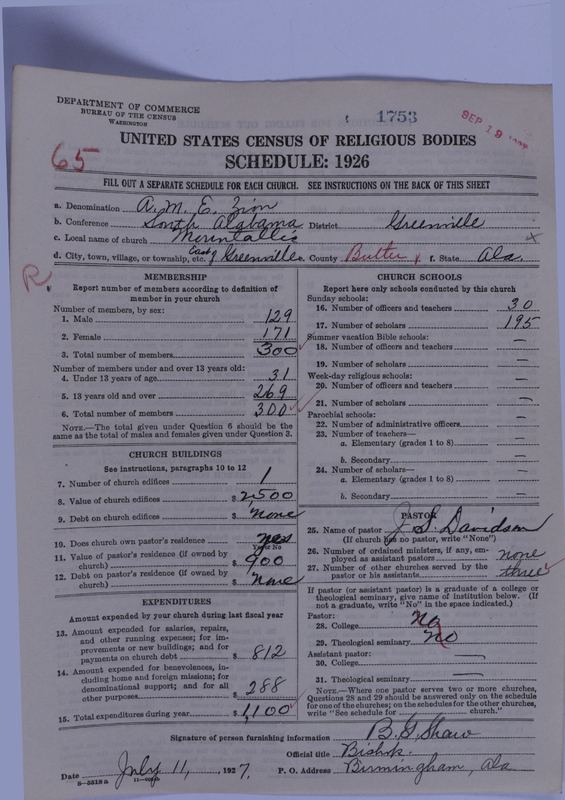 DEPARTMENT OF COMMERCE
BUREAU OF THE CENSUS
WASHINGTON
1753
SEP 19
65
UNITED STATES CENSUS OF RELIGIOUS BODIES
SCHEDULE: 1926
FILL OUT A SEPARATE SCHEDULE FOR EACH CHURCH. SEE INSTRUCTIONS ON THE BACK OF THIS SHEET
a. Denomination A. M. E. Zion
b. Conference South Alabama District Greenville
c. Local name of church
d. City, town, village, or township, etc. East of Greenville. County Butler f. State Ala.
R
MEMBERSHIP
Report number of members according to definition of member in your church
Number of members, by sex:
1. Male 129
2. Female 171
3. Total number of members 300
Number of members under and over 13 years old:
4. Under 13 years of age 31
5. 13 years old and over 269
6. Total number of members 300
NOTE.—The total given under Question 6 should be same as the total of males and females given under Question 3.
CHURCH BUILDINGS
See instructions, paragraphs 10 to 12
7. Number of church edifices 1
8. Value of church edifices $ 2500
9. Debt on church edifices $ none
10. Does church own pastor's residence yes
Yes or No
11. Value of pastor's residence (if owned by church) $ 900
12. Debt on pastor's residence (if owned by church) $ none
EXPENDITURES
Amount expended by your church during last fiscal year
13. Amount expended for salaries, repairs, and other running expenses; for improvements or new buildings; and for payments on church debt $ 812
14. Amount expended for benevolences, including home and foreign missions; for denominational support; and for all other purposes $ 288
15. Total expenditures during year $ 1,100
CHURCH SCHOOLS
Report here only schools conducted by this church
Sunday schools:
16. Number of officers and teachers 30
17. Number of scholars 195
Summer vacation Bible schools:
18. Number of officers and teachers —
19. Number of scholars —
Week-day religious schools:
20. Number of officers and teachers —
21. Number of scholars —
Parochial schools:
22. Number of administrative officers —
23. Number of teachers—
a. Elementary (grades 1 to 8) —
b. Secondary —
24. Number of scholars—
a. Elementary (grades 1 to 8) —
b. Secondary —
PASTOR
25. Name of pastor J. S. Davidson
(If church has no pastor, write "None")
26. Number of ordained ministers, if any, employed as assistant pastors none
27. Number of other churches served by the pastor or his assistants three
If pastor (or assistant pastor) is a graduate of a college or theological seminary, give name of institution below. (If not a graduate, write "No" in the space indicated.)
Pastor:
28. College No
29. Theological seminary No
Assistant pastor:
30. College —
31. Theological seminary —
NOTE.—Where one pastor serves two or more churches, Questions 28 and 29 should be answered only on the schedule for one of the churches; on the schedules for the other churches, write "See schedule for church."
Signature of person furnishing information B. G. Shaw
Official title Bishop
Date July 11, 1927. P. O. Address Birmingham, Ala
8-5318a